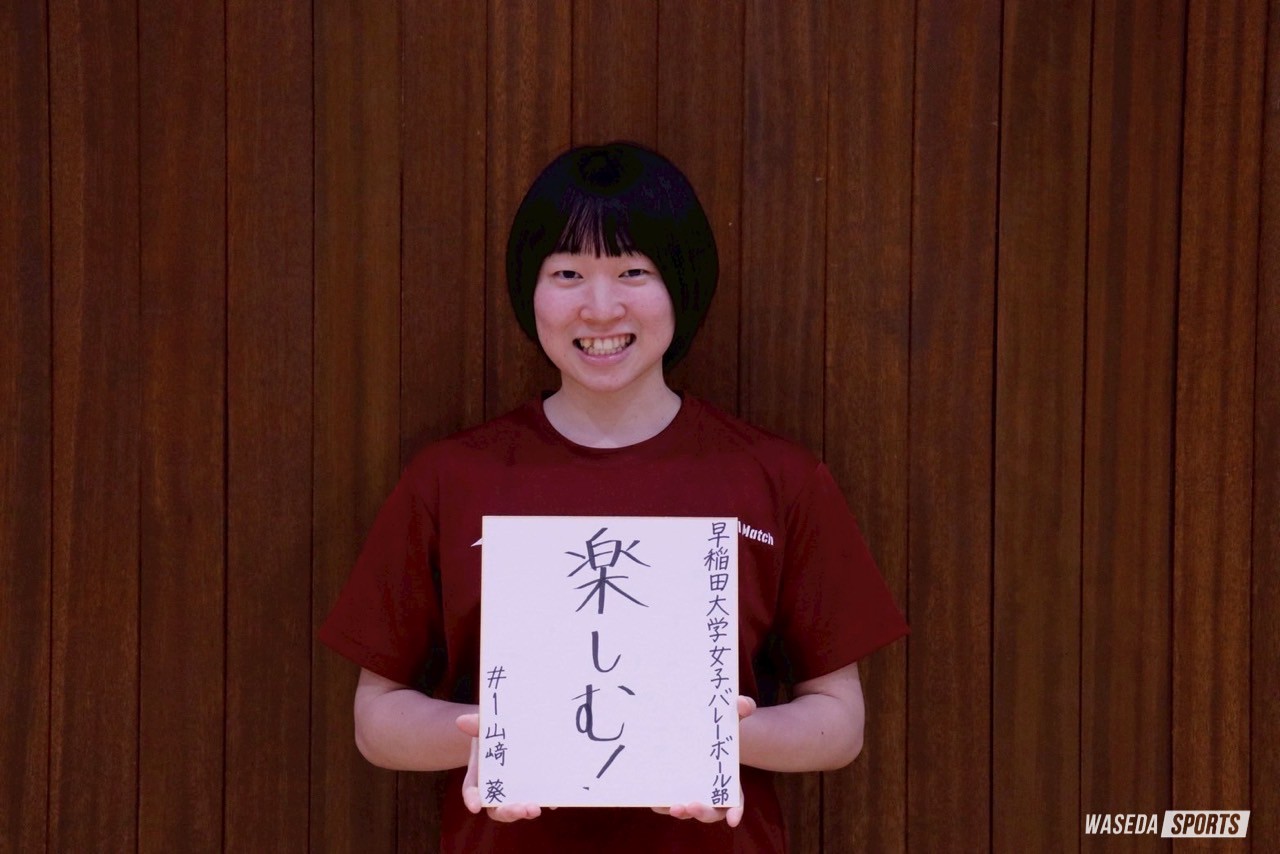 早稲田大学女子バレーボール部
楽しむ!
#1 山﨑 葵
Match
WASEDA SPORTS